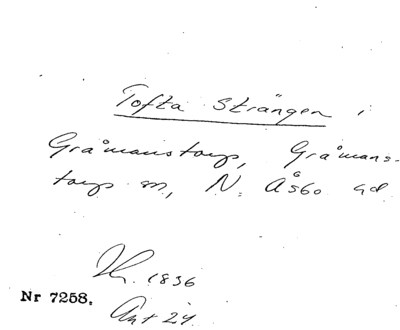 Tofta Strängen i
Gråmanstorp, Gråmans-
torp sn, N. Åsbo hd
1836
Nr 7258.
Ant 24